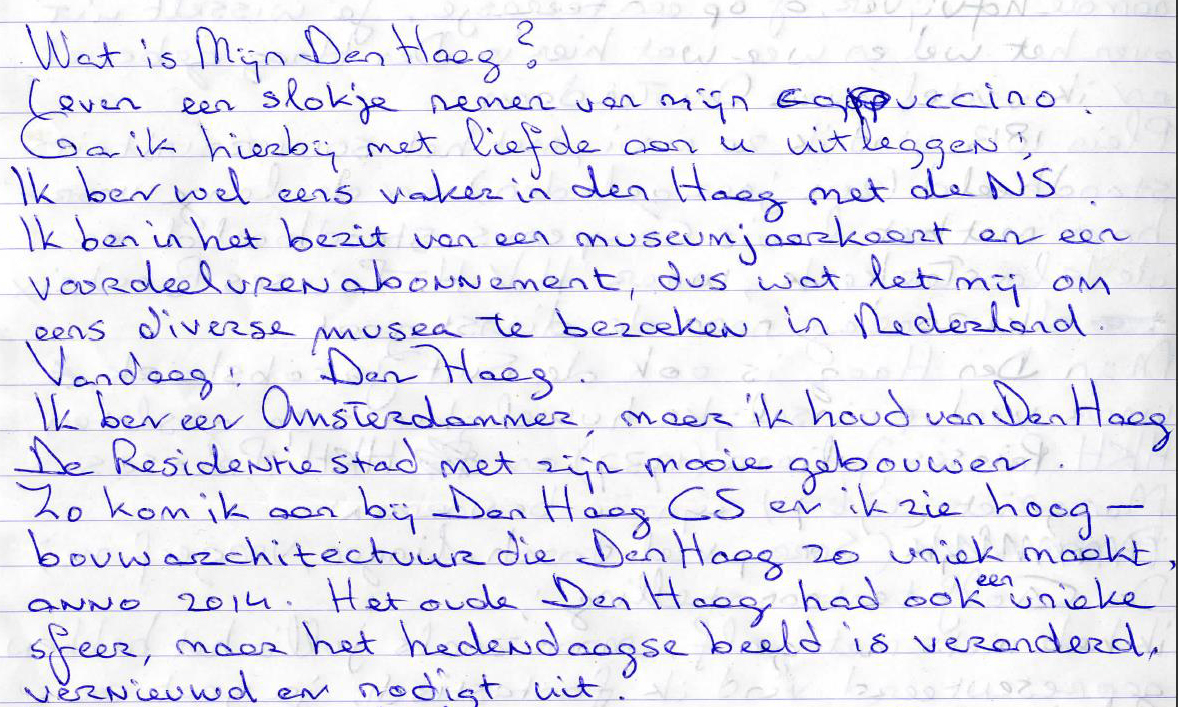 Wat is Mijn Den Haag?
(even een slokje nemen van mijn cappuccino.
Ga ik hierbij met liefde aan u uitleggen;
Ik ben wel eens vaker in den Haag met de NS.
Ik ben in het bezit van een museumjaarkaart en een
voordeelurenabonnement, dus wat let mij om
eens diverse musea te bezoeken in Nederland.
Vandaag: Den Haag.
Ik ben een Amsterdammer, maar ik houd van Den Haag
De Residentie stad met zijn mooie gebouwen.
Zo kom ik aan bij Den Haag CS en ik zie hoog-
bouwarchitectuur die Den Haag zo uniek maakt,
anno 2014. Het oude Den Haag had ook een unieke
sfeer, maar het hedendaagse beeld is veranderd,
vernieuwd en nodigt uit.